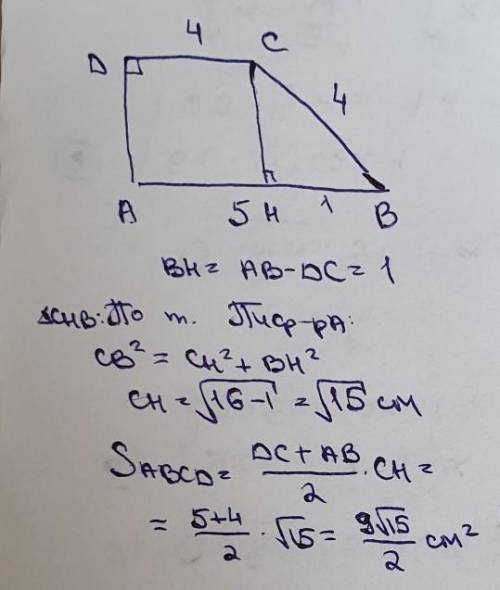 4
D C
4
A 5 H 1 B
BH = AB - DC = 1
ΔCHB: По т. Пиф-рА:
CB² = CH² + BH²
CH = √16-1 = √15 см
SABCD = DC + AB / 2 · CH =
= 5+4 / 2 · √15 = 9√15 / 2 см²